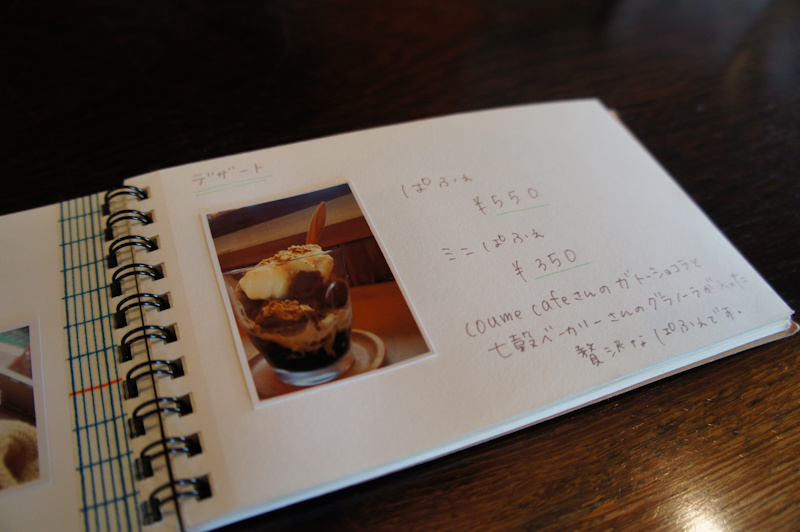 デザート
ぱふぇ
¥550
ミニぱふぇ
¥350
coume cafeさんのガトーショコラと
七穀ベーカリーさんのグラノーラが入った
贅沢なぱふぇです。